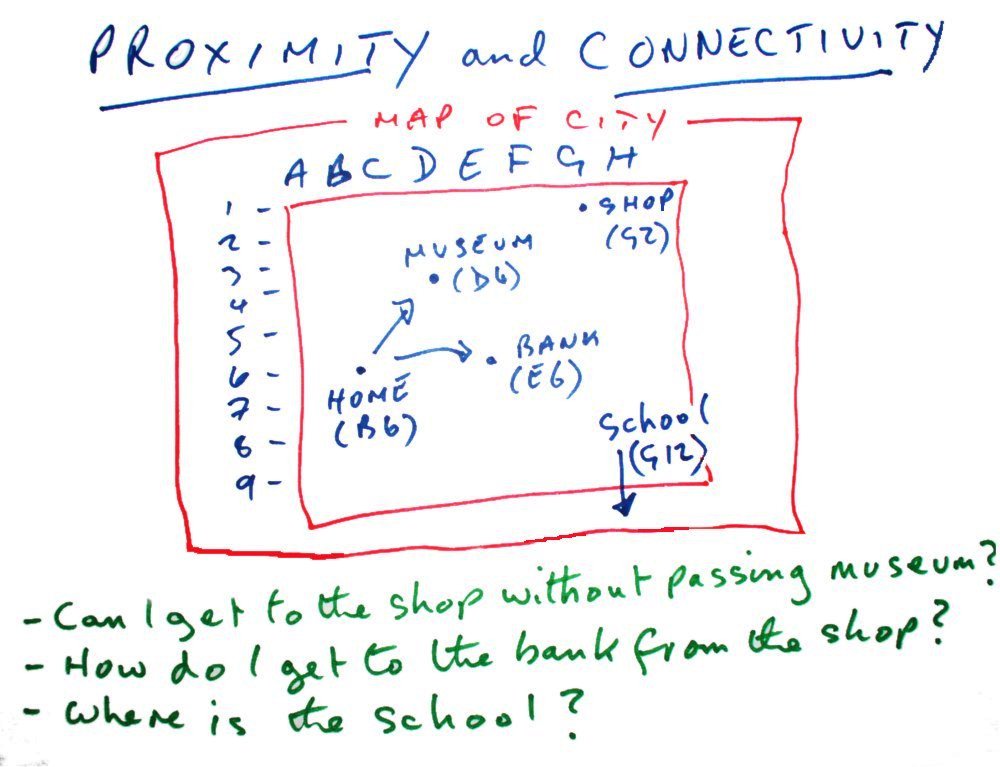 PROXIMITY and CONNECTIVITY
MAP OF CITY
A B C D E F G H
1 -
SHOP
2 -
(G2)
MUSEUM
3 -
(D6)
4 -
5 -
BANK
6 -
(E6)
HOME
7 -
School
(B6)
8 -
(G12)
9 -
- Can I get to the shop without passing museum?
- How do I get to the bank from the shop?
- Where is the school?